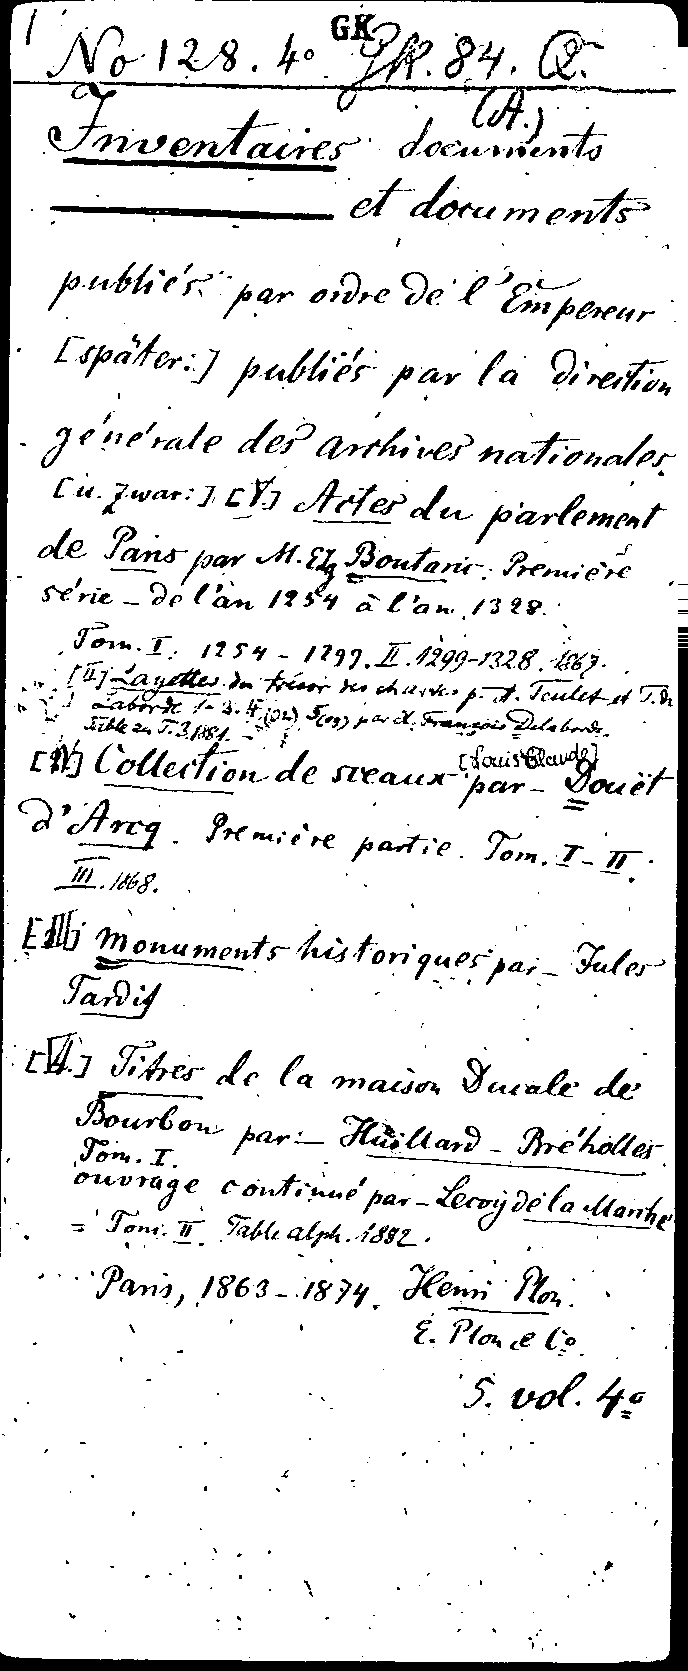 1
GK.
No 128. 4° Gk. 84. Q.
(A.)
Inventaires documents
et documents
publiés par ordre de l'Empereur
[später:] publiés par la direction
générale des archives nationales.
[u. zwar:] [V] Actes du parlement
de Paris par M. Boutaric. Première
série - de l'an 1254 à l'an 1328.
Tom. I. 1254 - 1299. II. 1299-1328. 1867.
[II] Layettes du trésor des chartes p. A. Teulet et
Laborde 1-3. 4 5 par François Delaborde.
T. 3 1881.
[IV] Collection de sceaux par - Douët
[Louis Claude]
d'Arcq. Première partie. Tom. I - II.
III. 1868.
[III] Monuments historiques par - Jules
Tardif
[VI.] Titres de la maison Ducale de
Bourbon par: - Huillard - Bréholles
Tom. I.
ouvrage continué par - Lecoy de la Marche
= Tom. II. Table alph. 1882.
Paris, 1863 - 1874. Henri Plon.
E. Plon & Co.
5. vol. 4°